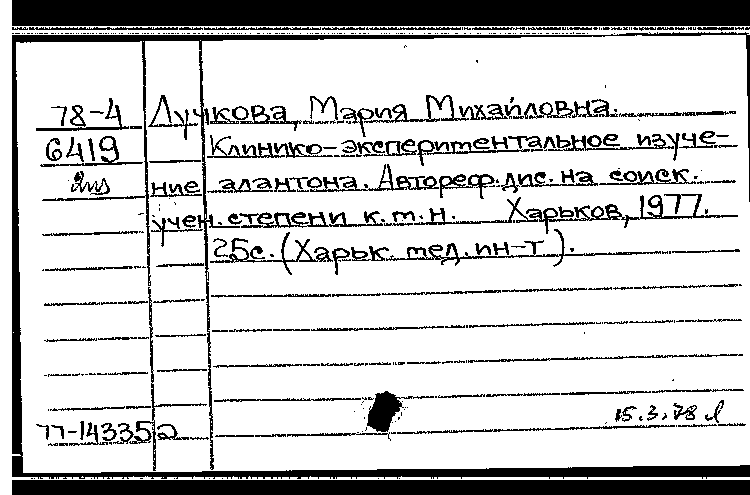 78-4 Лучкова, Мария Михайловна.
6419 Клинико-экспериментальное изуче-
ние алантона. Автореф. дис. на соиск.
учен. степени к.м.н. Харьков, 1977.
25с. (Харьк. мед. ин-т).
15.3.78
77-14335